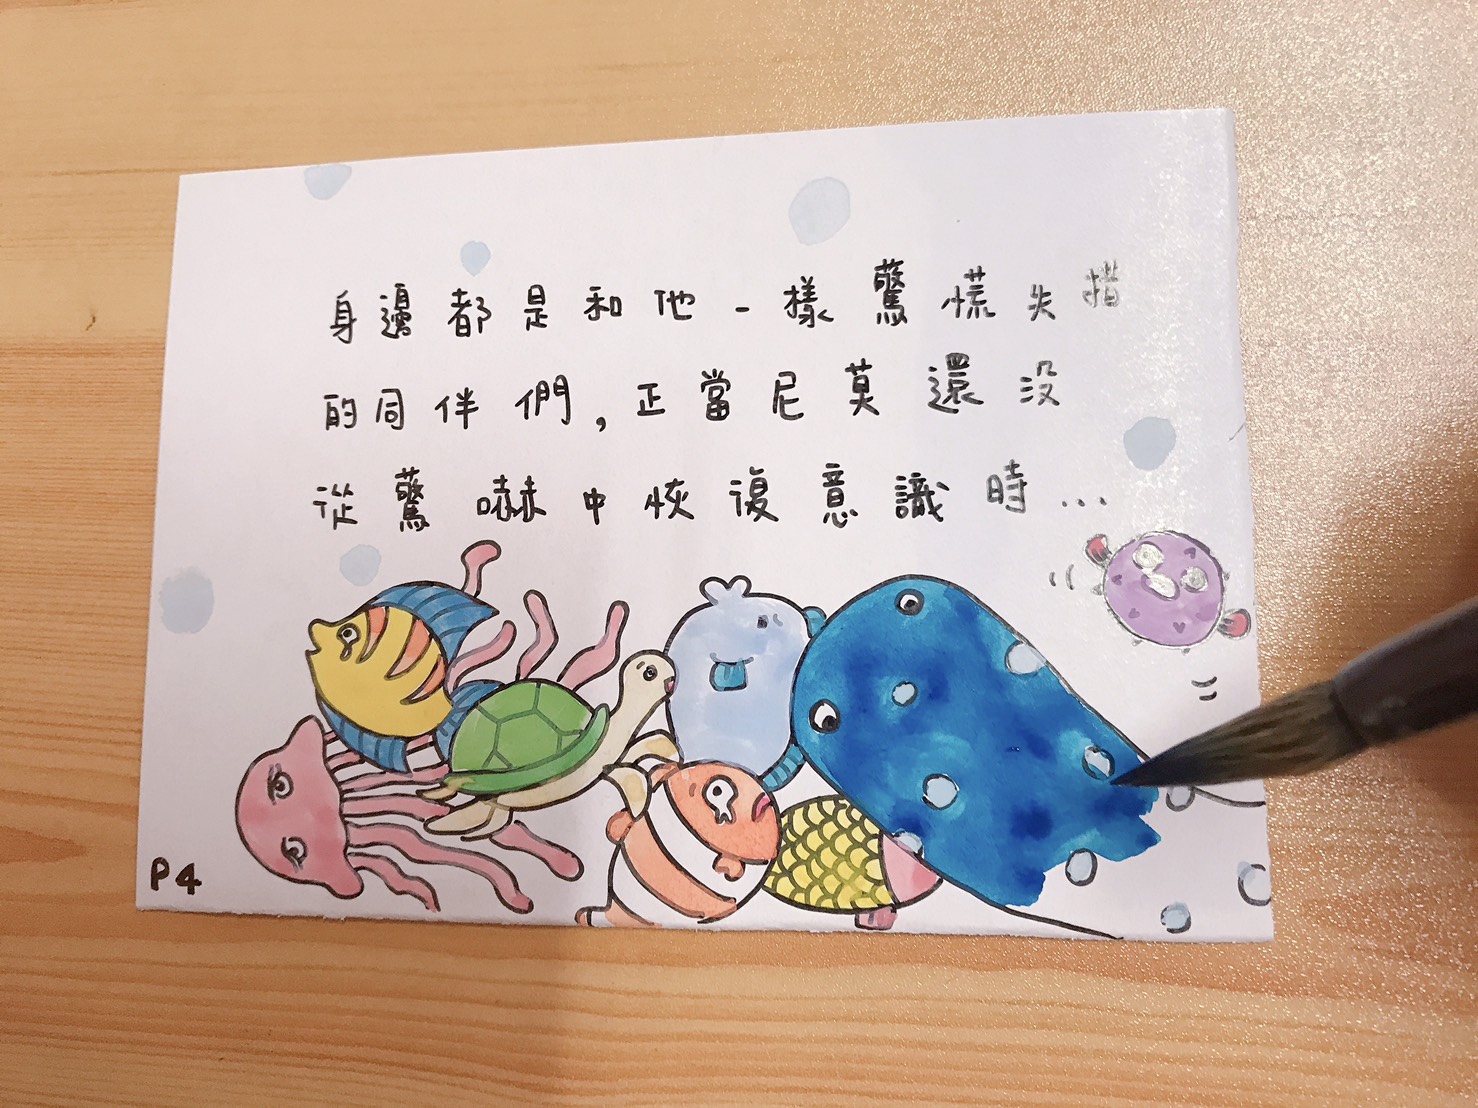 身邊都是和他一樣驚慌失措
的同伴們，正當尼莫還沒
從驚嚇中恢復意識時...
P4